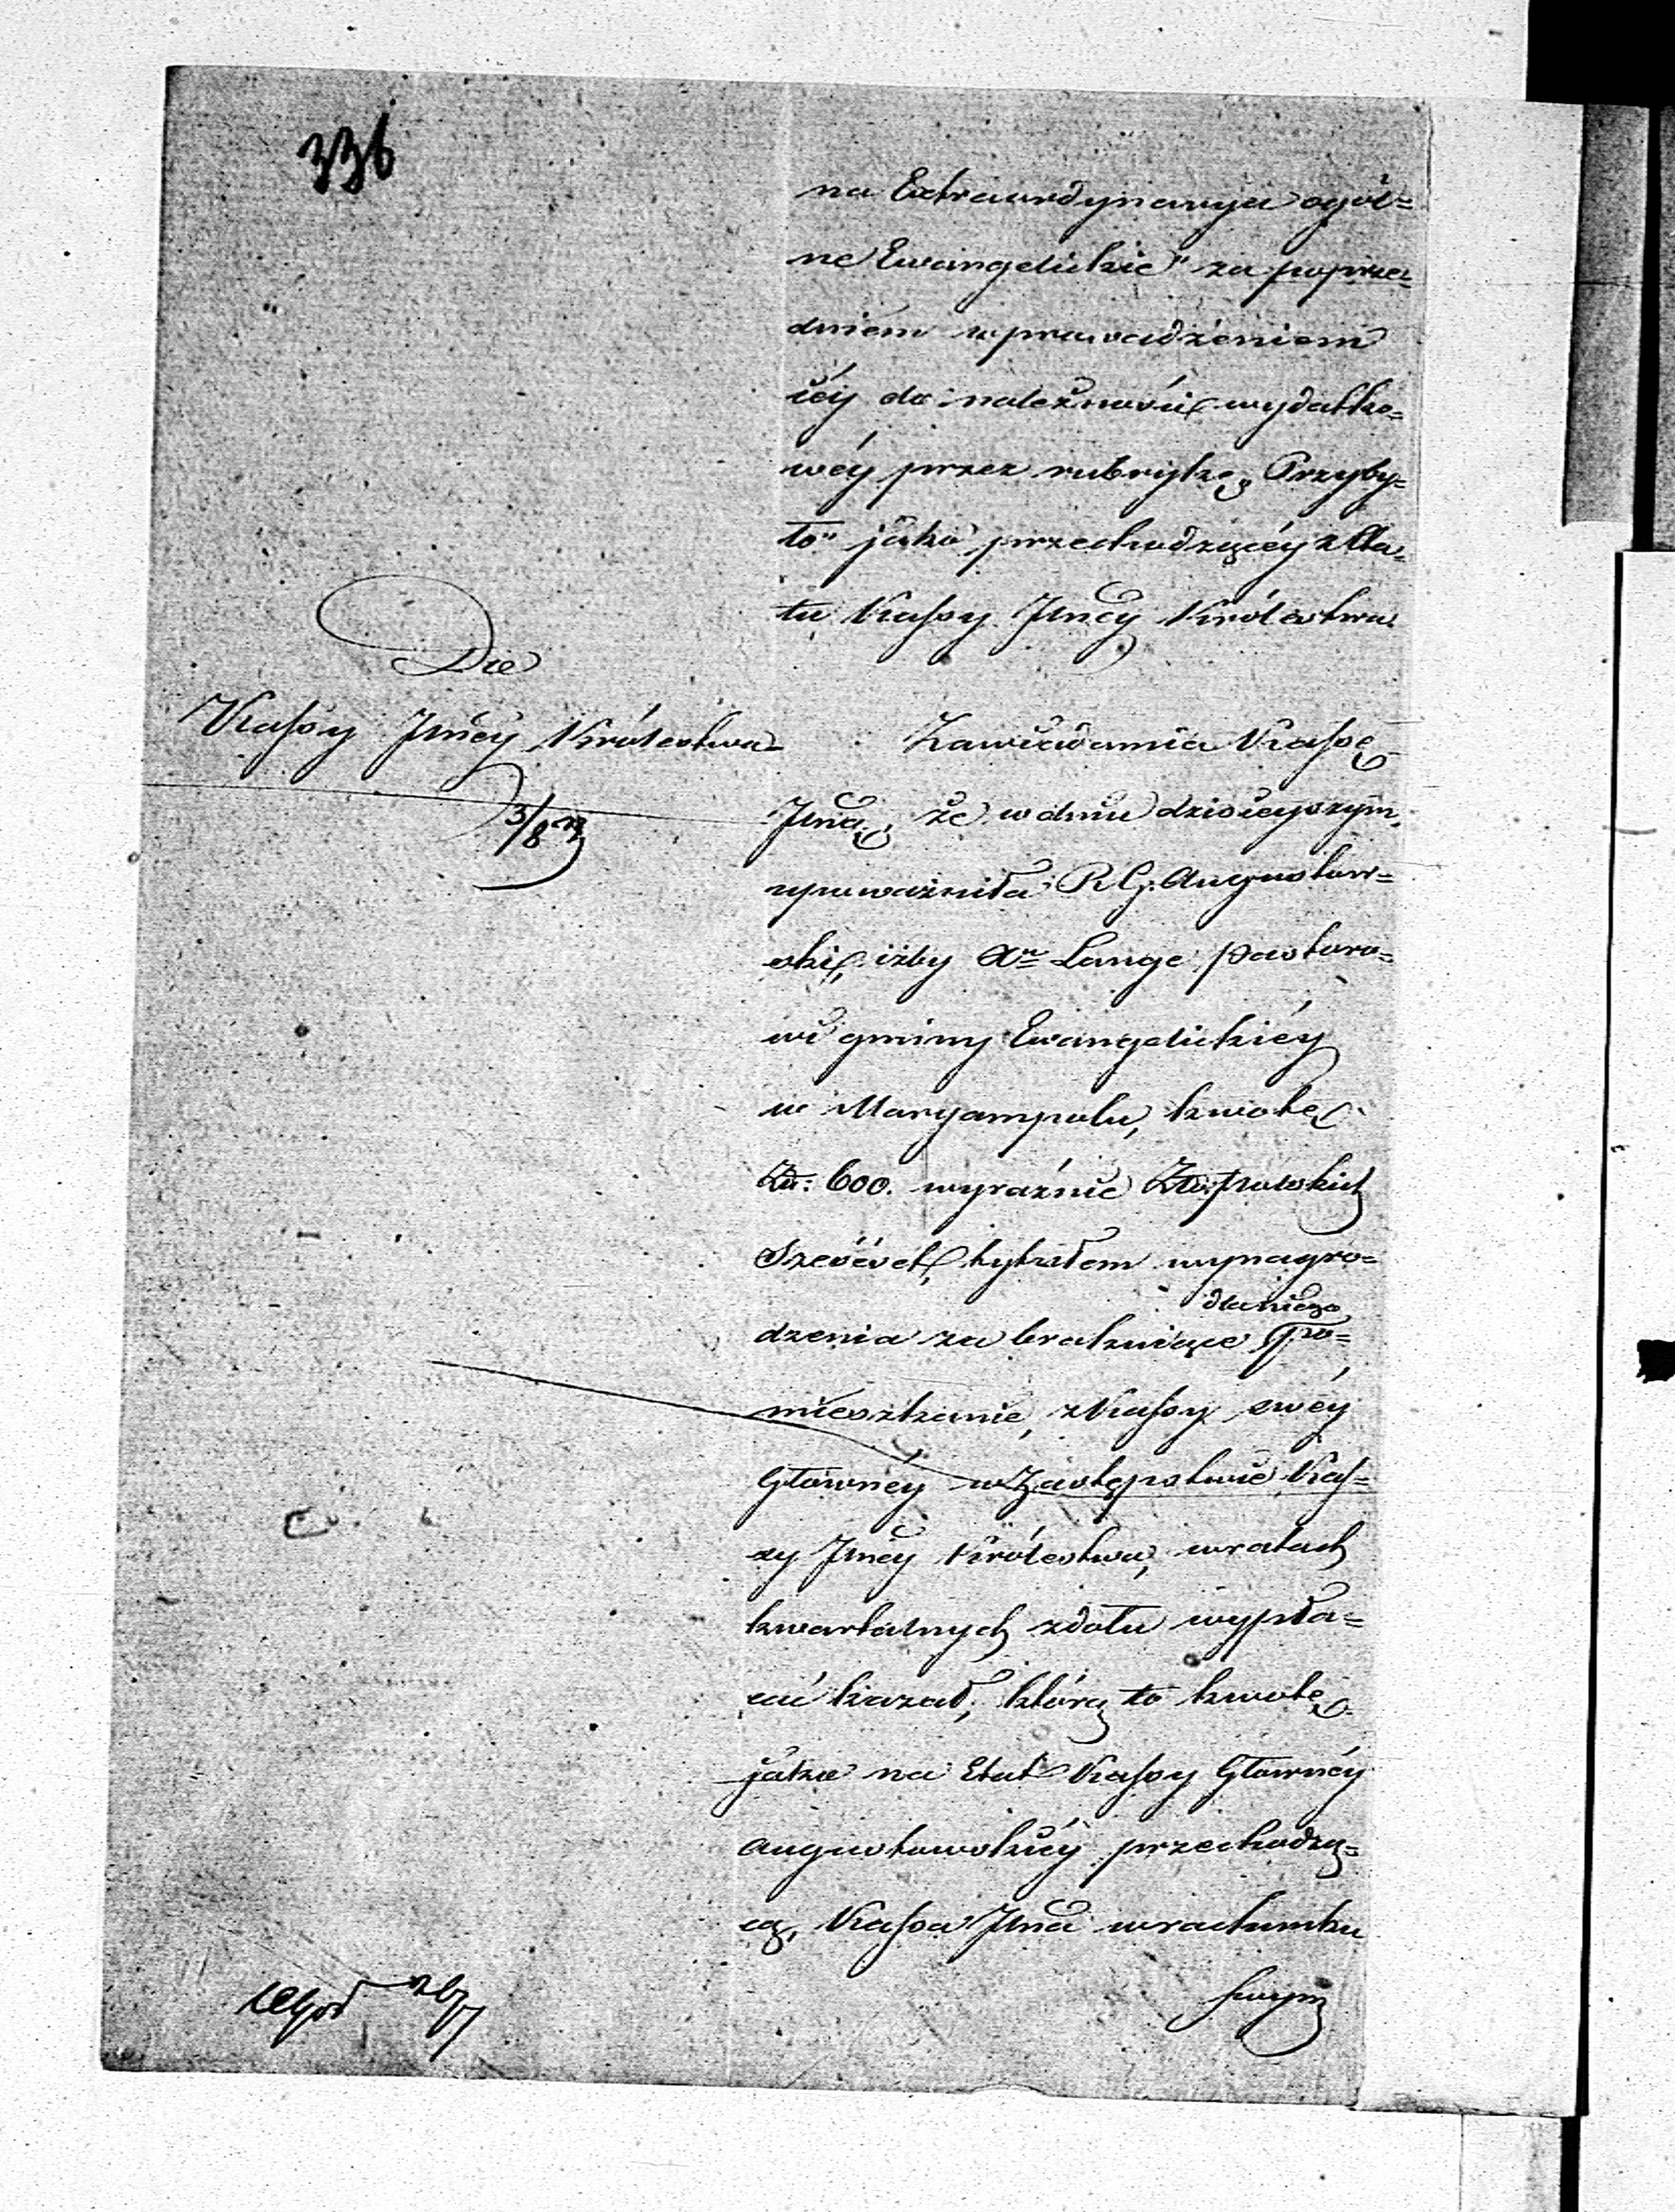 336
na Extraordynarya ogól=
ne Ewangelickie" za poprze=
dniem wprowadzeniem
iéy do należności wydatko=
wéy przez rubrykę „Przyby=
ło" jako przechodzącéy z Eta=
tu Kassy Jłnéy Królestwa
Do
Kassy Jłnéy Królestwa
3/8
Zawiadamia Kassę
Jłną, że w dniu dzisieyszym
upoważniła R. G. Augustow=
ski, iżby Xu Lange Pastoro=
wi gminy Ewangelickiéy
w Maryampolu, kwotę
Złt: 600. wyraźnie Złot. polskich
Sześćset, tytułem wynagro=
dla niego
dzenia za brakuiące po=
mieszkanie, z Kassy swéy
Główney w Zastępstwie Kas=
sy Jłnéy Królestwa, w ratach
kwartalnych z dołu wypła=
cać kazał, którą to kwotę
jako na Etat Kassy Główney
Augustowskiéy przechodzą=
cą, Kassa Jłna w rachunku
swym
26/7